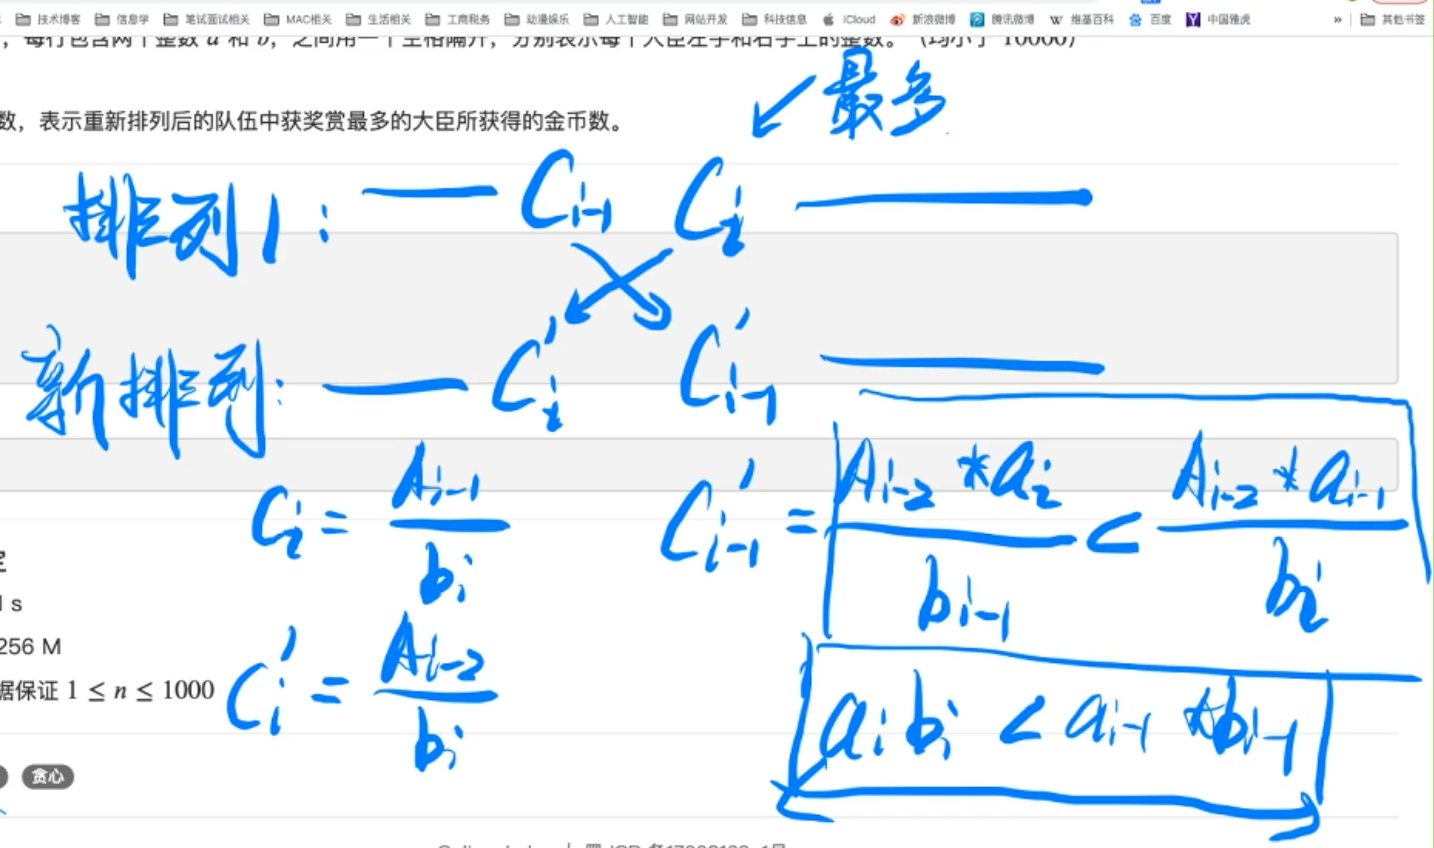 技术博客 信息学 笔试面试相关 MAC相关 生活相关 工商税务 动漫娱乐 人工智能 网站开发 科技信息 iCloud 新浪微博 腾讯微博 维基百科 百度 中国雅虎 » 其他书签
，每行包含两个整数 a 和 b，之间用一个空格隔开，分别表示每个大臣左手和右手上的整数。（均小于 10000）
最多
数，表示重新排列后的队伍中获奖赏最多的大臣所获得的金币数。
排列1： — C_{i-1} C_i —
新排列: — C_i' C_{i-1}' —
C_i = A_{i-1} / b_i
C_{i-1}' = A_{i-2} * a_i / b_{i-1} < A_{i-2} * a_{i-1} / b_i
s
256 M
C_i' = A_{i-2} / b_i
据保证 1 ≤ n ≤ 1000
a_i b_i < a_{i-1} * b_{i-1}
贪心